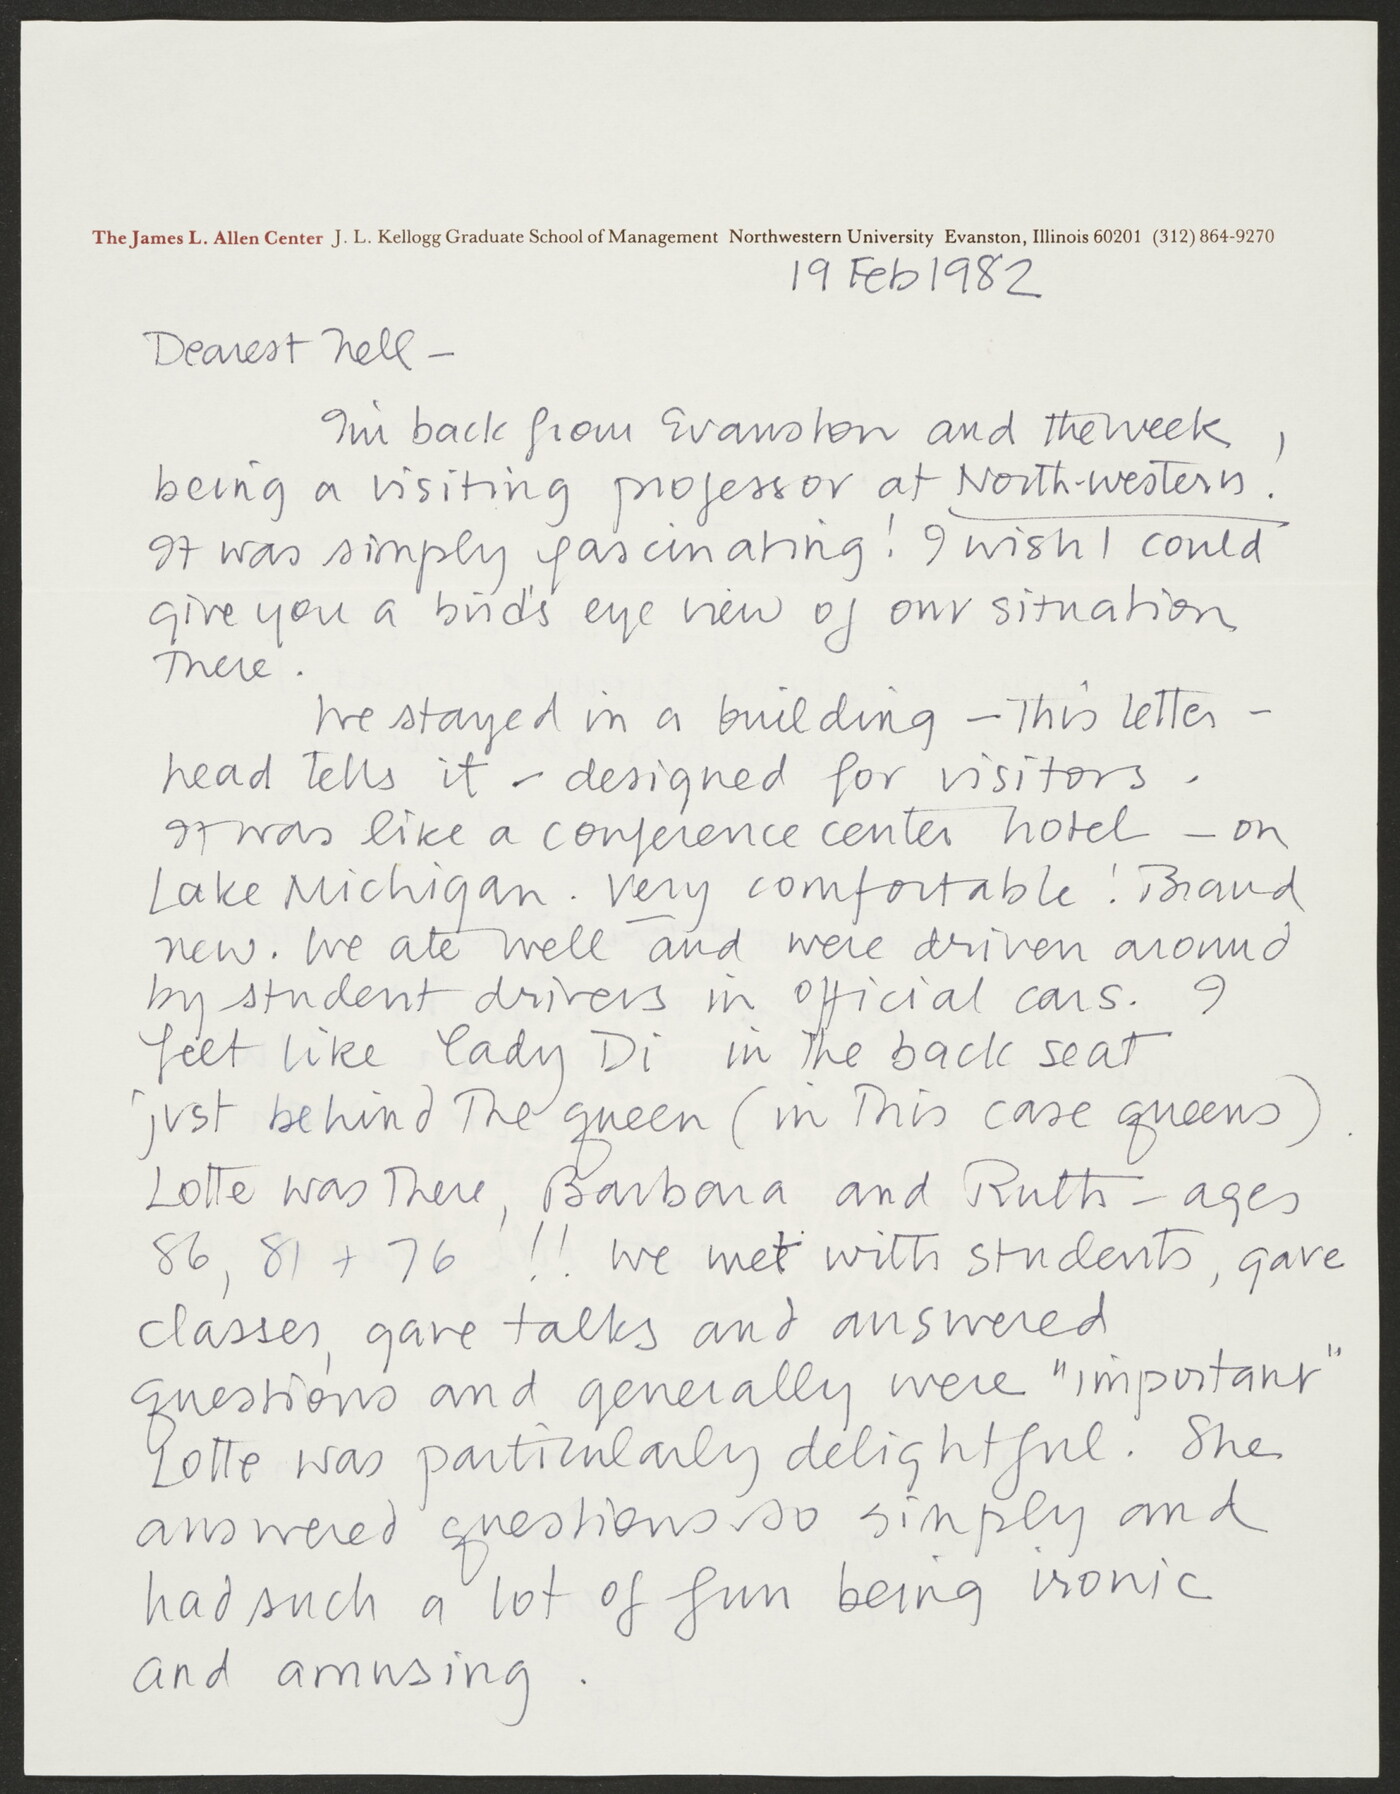 The James L. Allen Center J. L. Kellogg Graduate School of Management Northwestern University Evanston, Illinois 60201 (312) 864-9270
19 Feb 1982
Dearest Nell –
I'm back from Evanston and the week,
being a visiting professor at North-western!
It was simply fascinating! I wish I could
give you a bird's eye view of our situation
there.
We stayed in a building – this letter –
head tells it – designed for visitors.
It was like a conference center hotel – on
Lake Michigan. Very comfortable! Brand
new. We ate well and were driven around
by student drivers in official cars. I
felt like Lady Di in the back seat
just behind the queen (in this case queens).
Lotte was there, Barbara and Ruth – ages
86, 81 + 76 !! We met with students, gave
classes, gave talks and answered
questions and generally were "important"
Lotte was particularly delightful. She
answered questions so simply and
had such a lot of fun being ironic
and amusing.